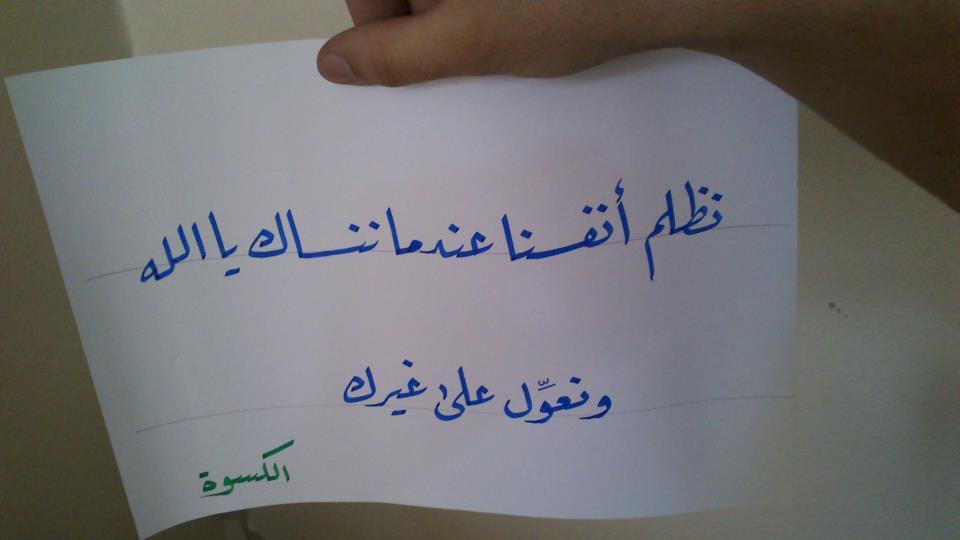 نظلم أنفسنا عندما ننساك يا الله
ونعوِّل على غيرك
الكسوة